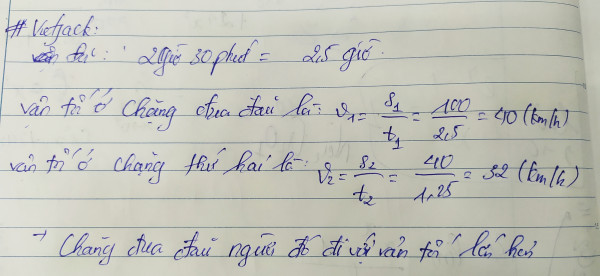 # Vietjack:
đổi: 2giờ 30 phút = 2,5 giờ.
vận tốc ở chặng đua đầu là: v₁ = s₁/t₁ = 100/2,5 = 40 (km/h)
vận tốc ở chặng thứ hai là: v₂ = s₂/t₂ = 40/1,25 = 32 (km/h)
→ Chặng đua đầu người đó đi với vận tốc lớn hơn